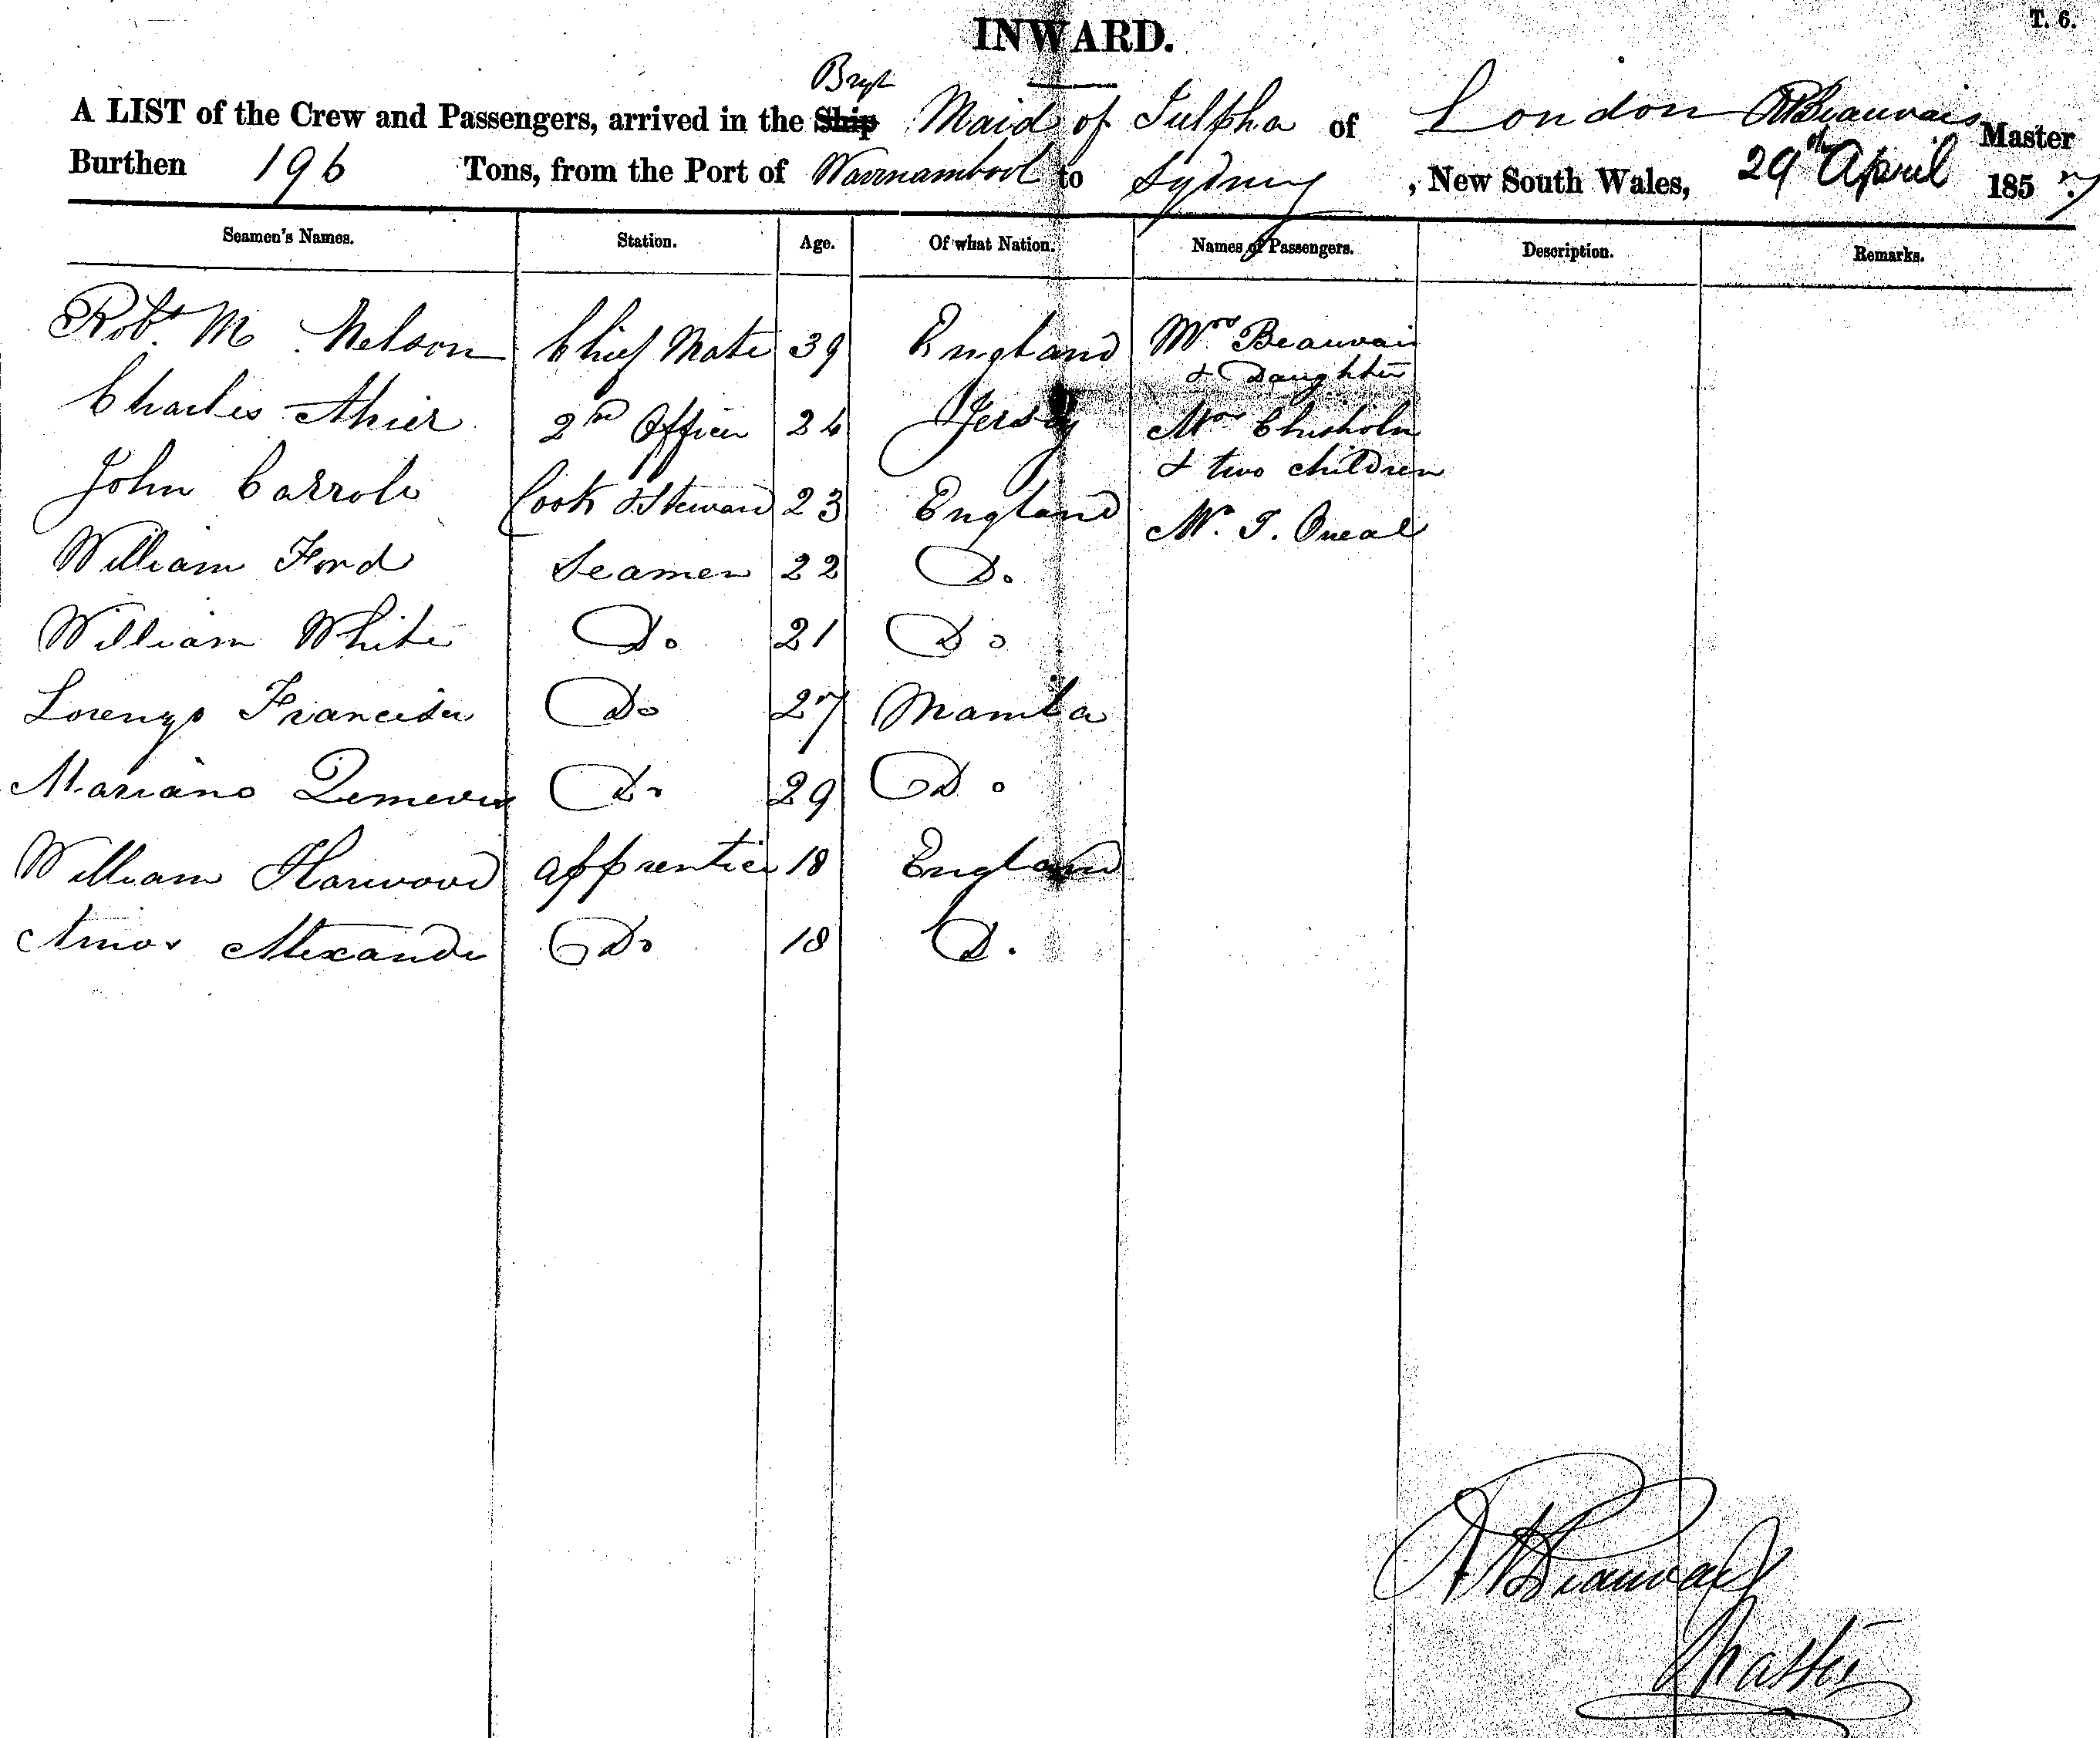 INWARD.
T. 6.
A LIST of the Crew and Passengers, arrived in the Ship Maid of Julpha of London Beauvais Master
Burthen 196 Tons, from the Port of Warrnambool to Sydney, New South Wales, 29th April 1857
Seamen's Names. Station. Age. Of what Nation. Names of Passengers. Description. Remarks.
Robt. M Nelson Chief Mate 39 England Mrs Beauvais
& Daughter
Charles Ahier 2nd Officer 24 Jersey Mrs Chisholm
& two children
John Carroll Cook & Steward 23 England Mr. T. Oneal
William Ford Seamen 22 Do.
William White Do 21 Do
Lorenzo Francisco Do 27 Manila
Mariano Do 29 Do
William Harwood Apprentice 18 England
Amos Alexander Do 18 Do.
Beauvais
Master